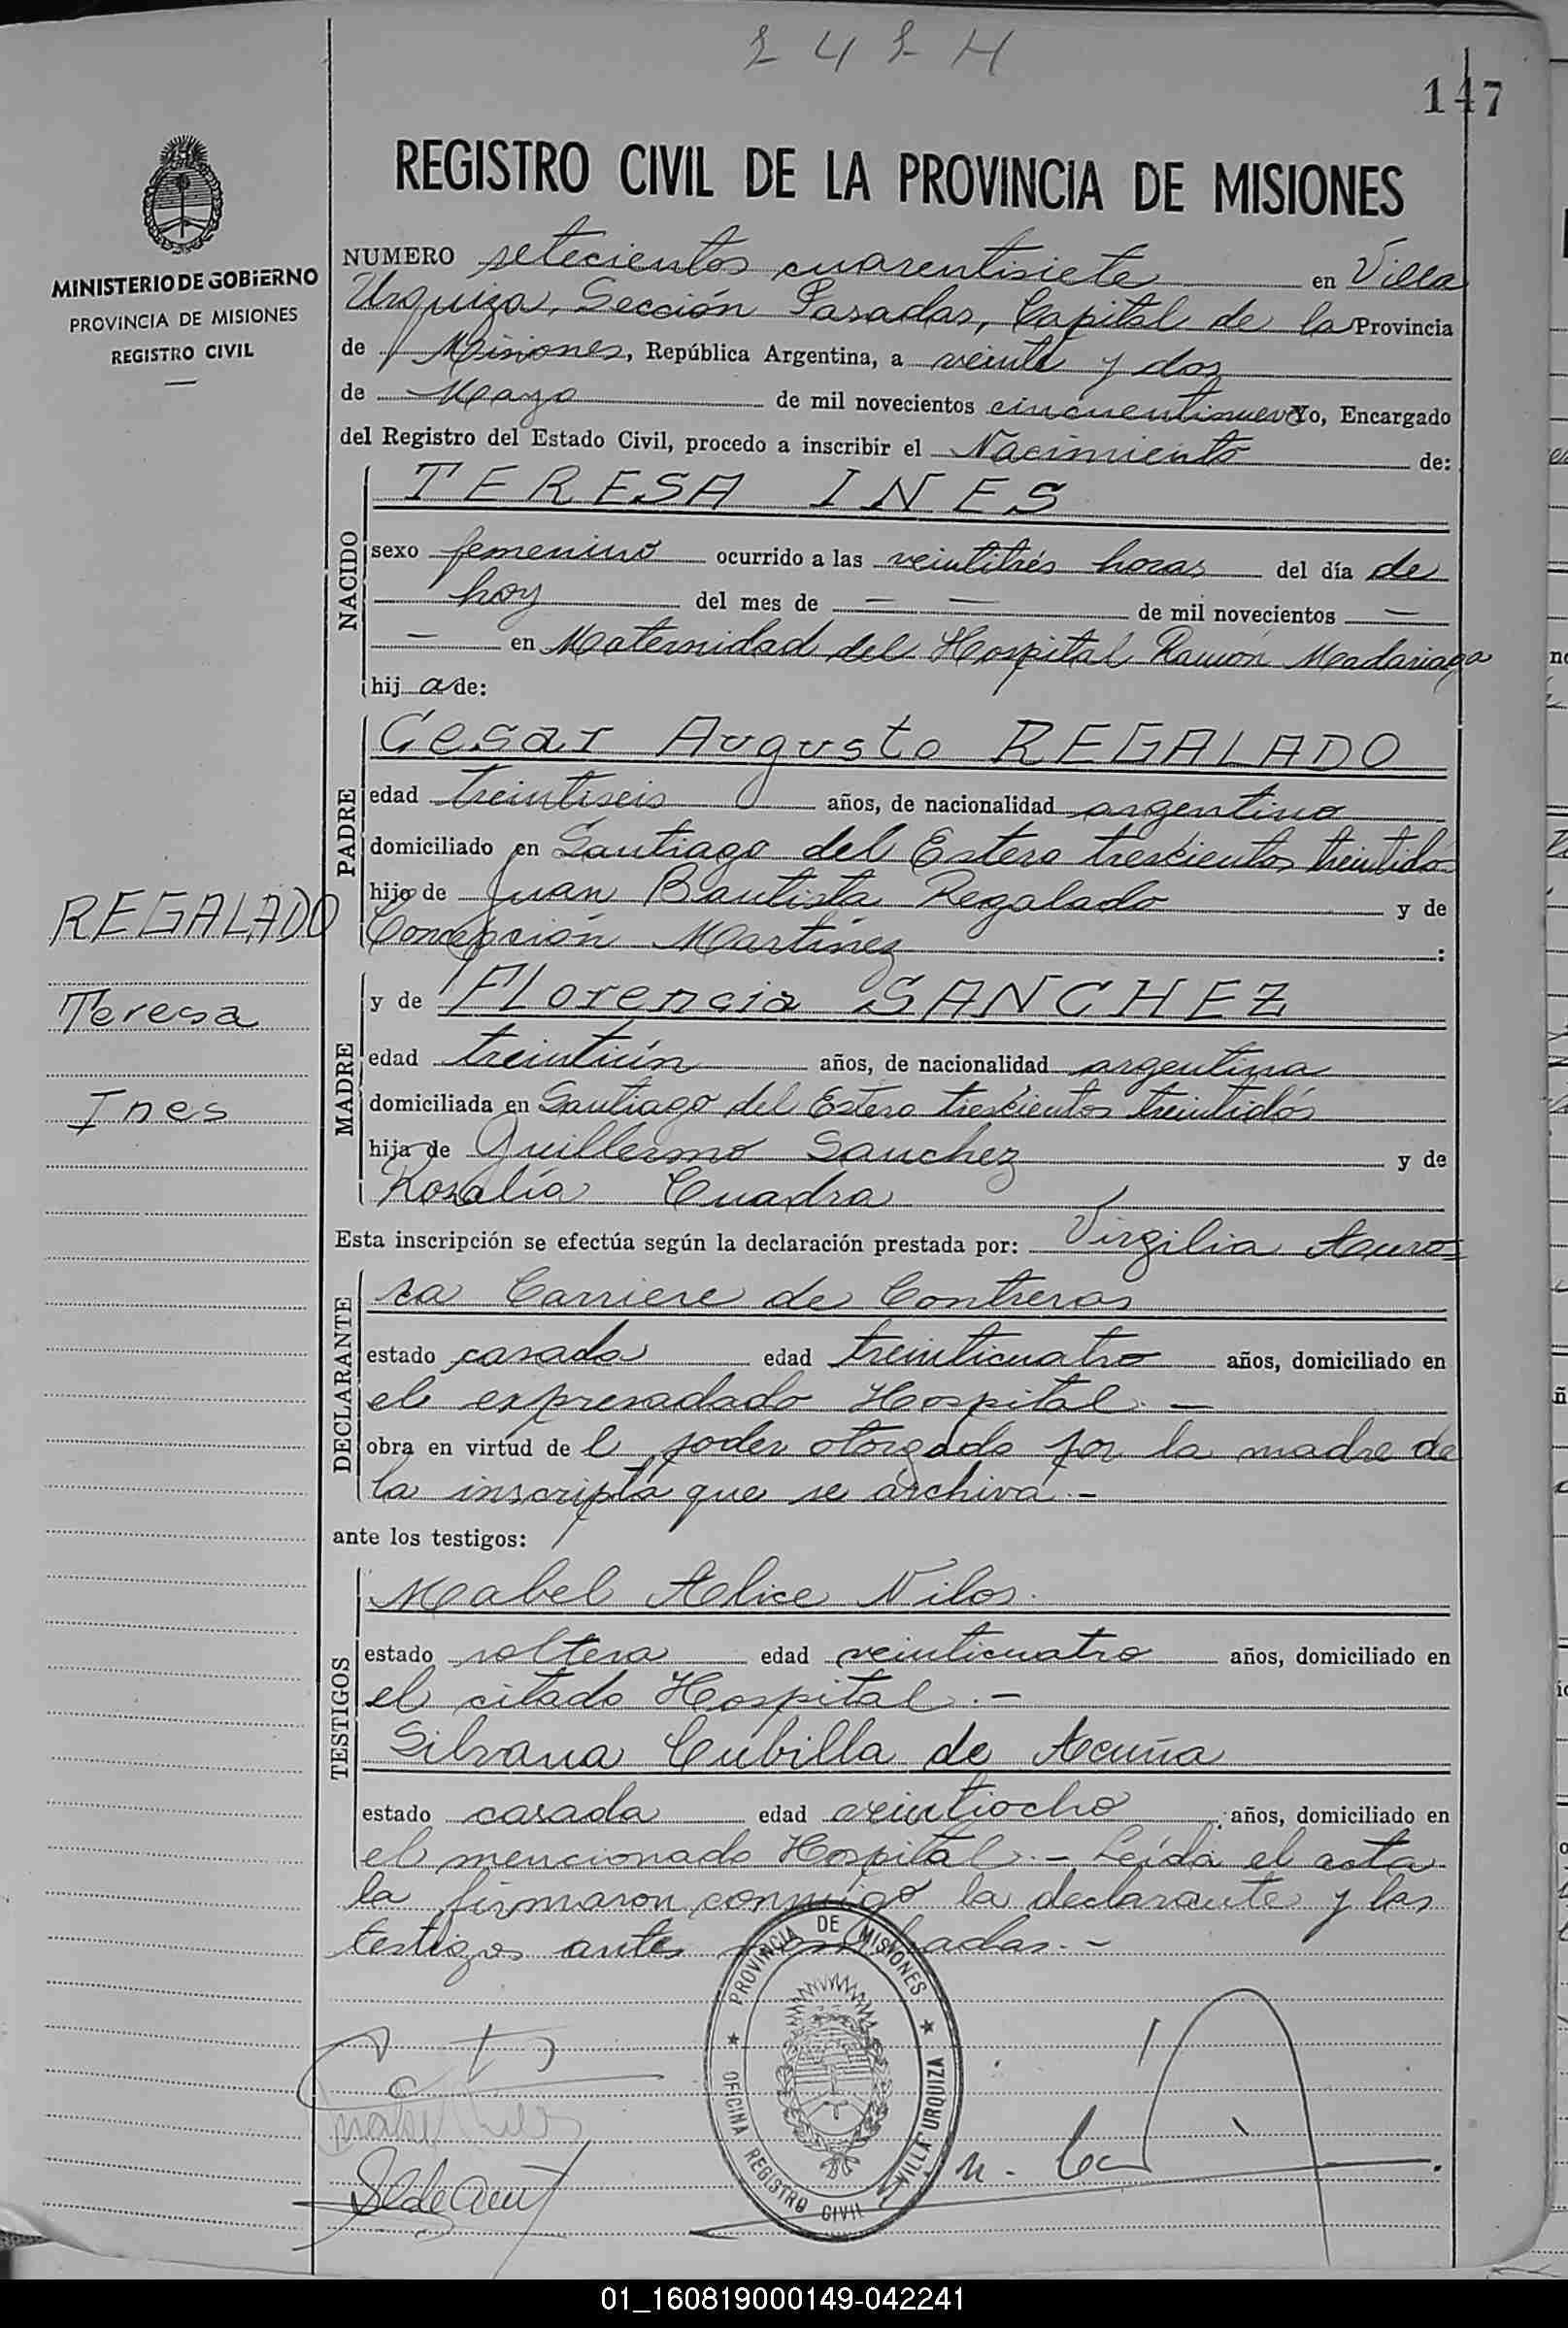 147
REGISTRO CIVIL DE LA PROVINCIA DE MISIONES
MINISTERIO DE GOBIERNO
PROVINCIA DE MISIONES
REGISTRO CIVIL
NUMERO setecientos cuarentisiete en Villa
Urquiza, Sección Posadas, Capital de la Provincia
de Misiones, República Argentina, a veinte y dos
de Mayo de mil novecientos cincuentinueve Yo, Encargado
del Registro del Estado Civil, procedo a inscribir el Nacimiento de:
NACIDO
TERESA INES
sexo femenino ocurrido a las veintitrés horas del día de
hoy del mes de — — de mil novecientos —
— en Maternidad del Hospital Ramón Madariaga
hij a de:
PADRE
Cesar Augusto REGALADO
edad treintiseis años, de nacionalidad argentino
domiciliado en Santiago del Estero trescientos treintidos
hijo de Juan Bautista Regalado y de
Concepción Martínez :
REGALADO
Teresa
Ines
MADRE
y de Florencia SANCHEZ
edad treintiún años, de nacionalidad argentina
domiciliada en Santiago del Estero trescientos treintidós
hija de Guillermo Sanchez y de
Rosalía Cuadra
Esta inscripción se efectúa según la declaración prestada por: Virgilia Auro=
DECLARANTE
ra Carriere de Contreras
estado casada edad treinticuatro años, domiciliado en
el expresadado Hospital. —
obra en virtud de l poder otorgado por la madre de
la inscripta que se archiva.-
ante los testigos:
TESTIGOS
Mabel Alice Nilos.
estado soltera edad veinticuatro años, domiciliado en
el citado Hospital.-
Silvana Cubilla de Acuña
estado casada edad veintiocho años, domiciliado en
el mencionado Hospital.- Leída el acta
la firmaron conmigo la declarante y las
testigos antes nombradas.-
PROVINCIA DE MISIONES
OFICINA REGISTRO CIVIL VILLA URQUIZA
01_160819000149-042241